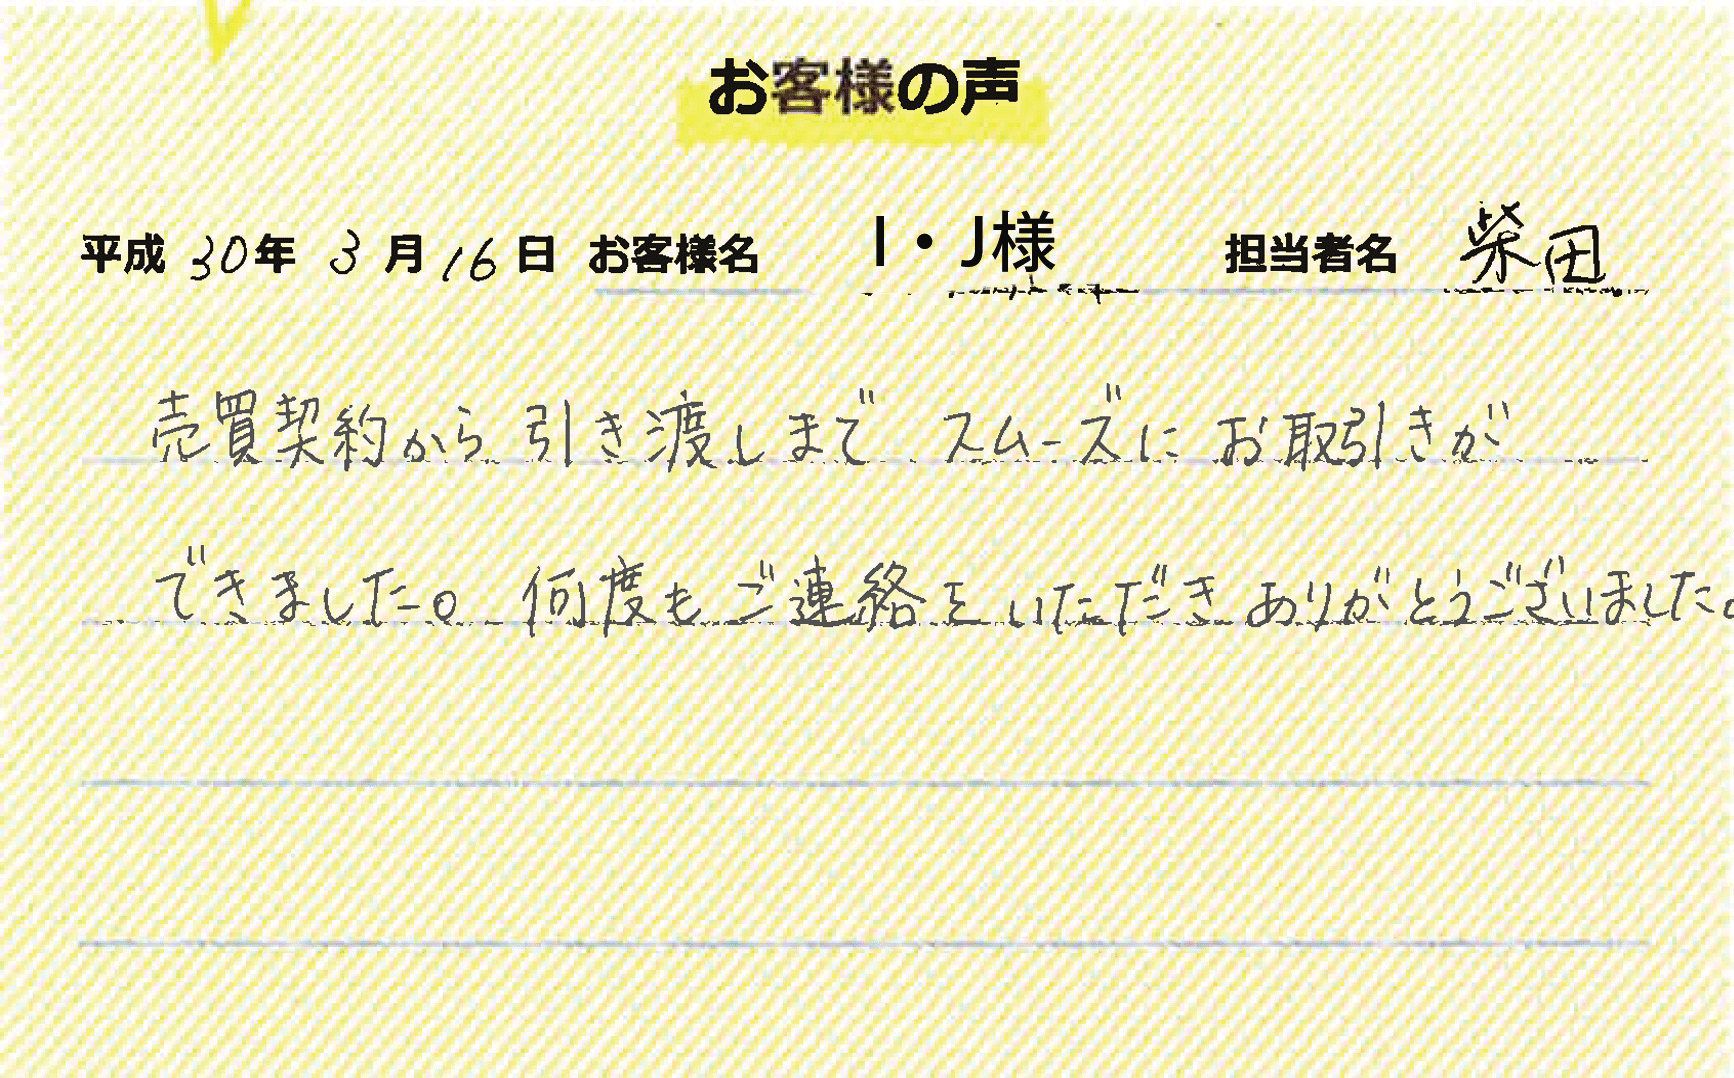 お客様の声
平成30年3月16日 お客様名 I・J様 担当者名 柴田
売買契約から引き渡しまで スムーズに お取引きが
できました。何度もご連絡をいただき ありがとうございました。